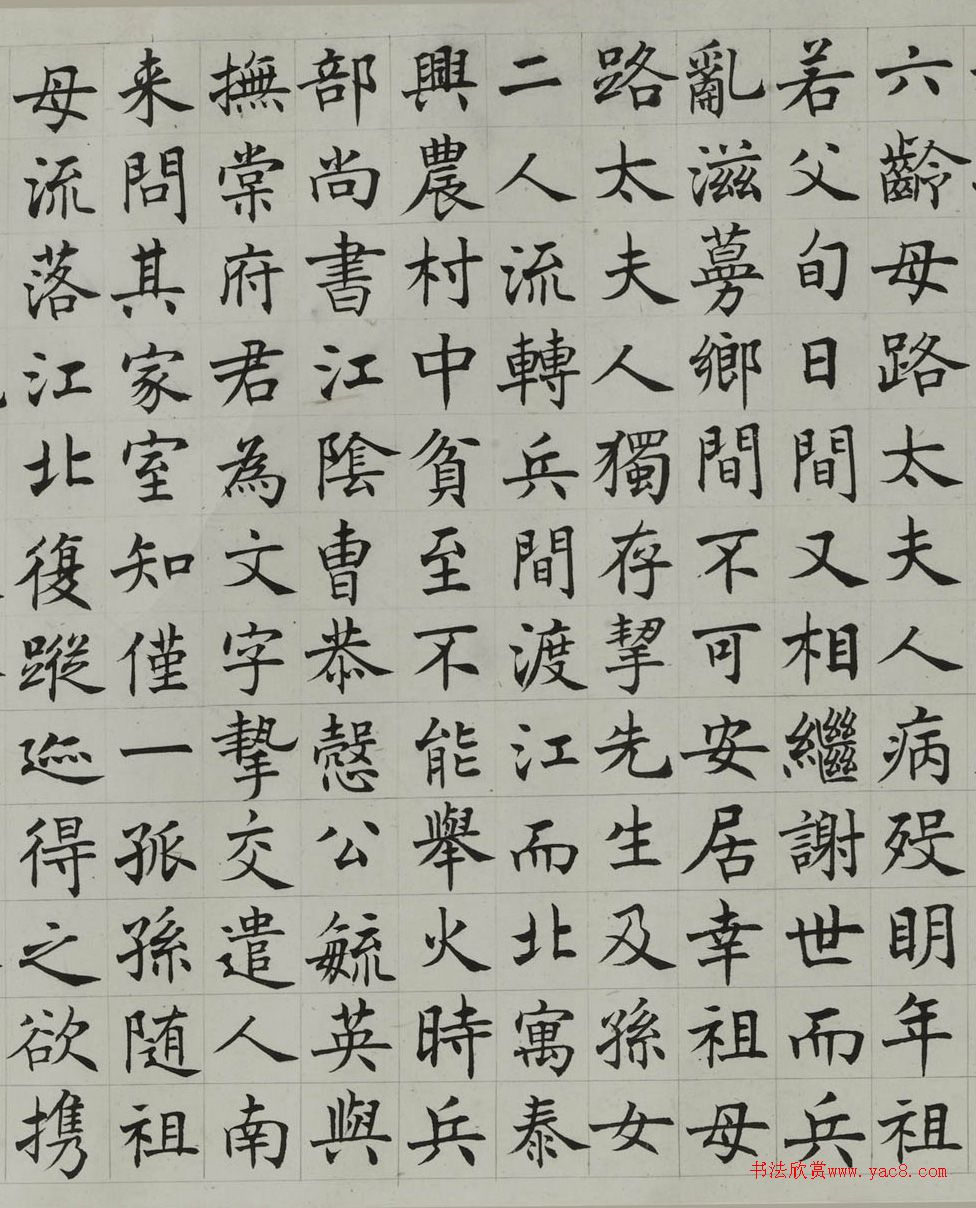 六齡母路太夫人病歿明年祖
若父旬日間又相繼謝世而兵
亂滋蔓鄉間不可安居幸祖母
路太夫人獨存挈先生及孫女
二人流轉兵間渡江而北寓泰
興農村中貧至不能舉火時兵
部尚書江陰曹恭愨公毓英與
撫棠府君為文字摯交遣人南
来問其家室知僅一孤孫随祖
母流落江北復蹤迹得之欲携
书法欣赏www.yac8.com